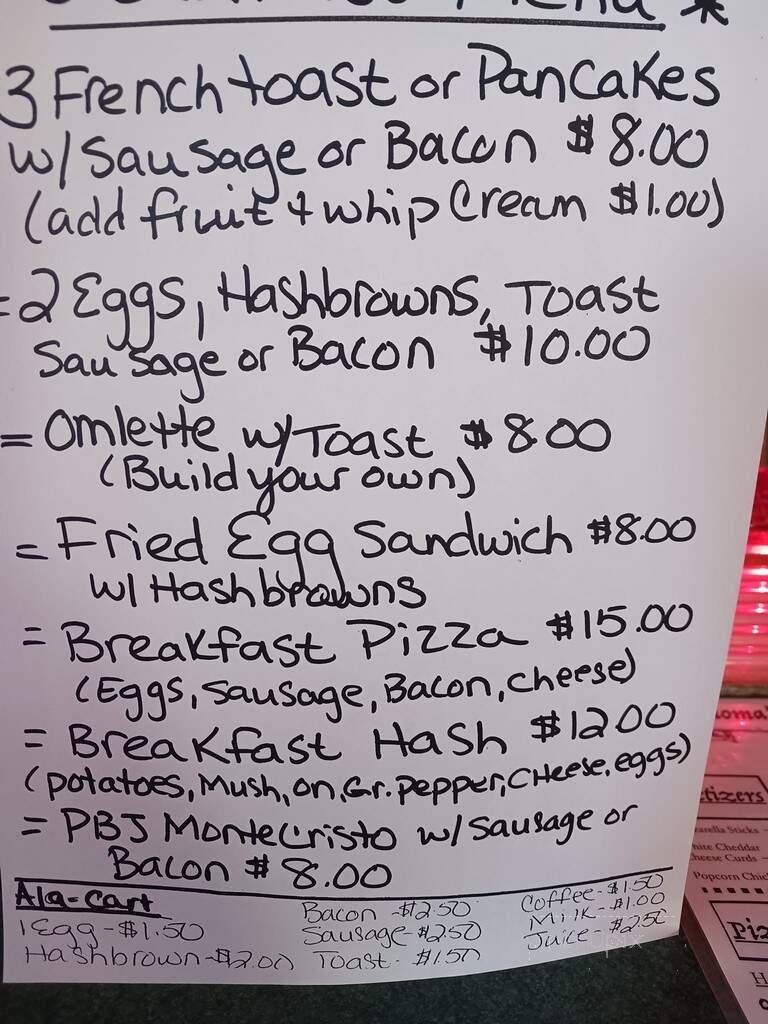 Menu *
3 French toast or Pancakes
w/ Sausage or Bacon $8.00
(add fruit + whip Cream $1.00)
= 2 Eggs, Hashbrowns, Toast
Sausage or Bacon $10.00
= Omlette w/ Toast $8.00
(Build your own)
= Fried Egg Sandwich $8.00
w/ Hashbrowns
= Breakfast Pizza $15.00
(Eggs, Sausage, Bacon, Cheese)
= Breakfast Hash $12.00
(potatoes, Mush, on, Gr. pepper, CHeese, eggs)
= PBJ MonteCristo w/ Sausage or
Bacon $8.00
Ala-Cart
1 Egg - $1.50
Hashbrown - $2.00
Bacon - $2.50
Sausage - $2.50
Toast - $1.50
Coffee - $1.50
Milk - $1.00
Juice - $2.50
tizers
arella Sticks
hite Cheddar
Cheese Curds
Popcorn Chic
Piz